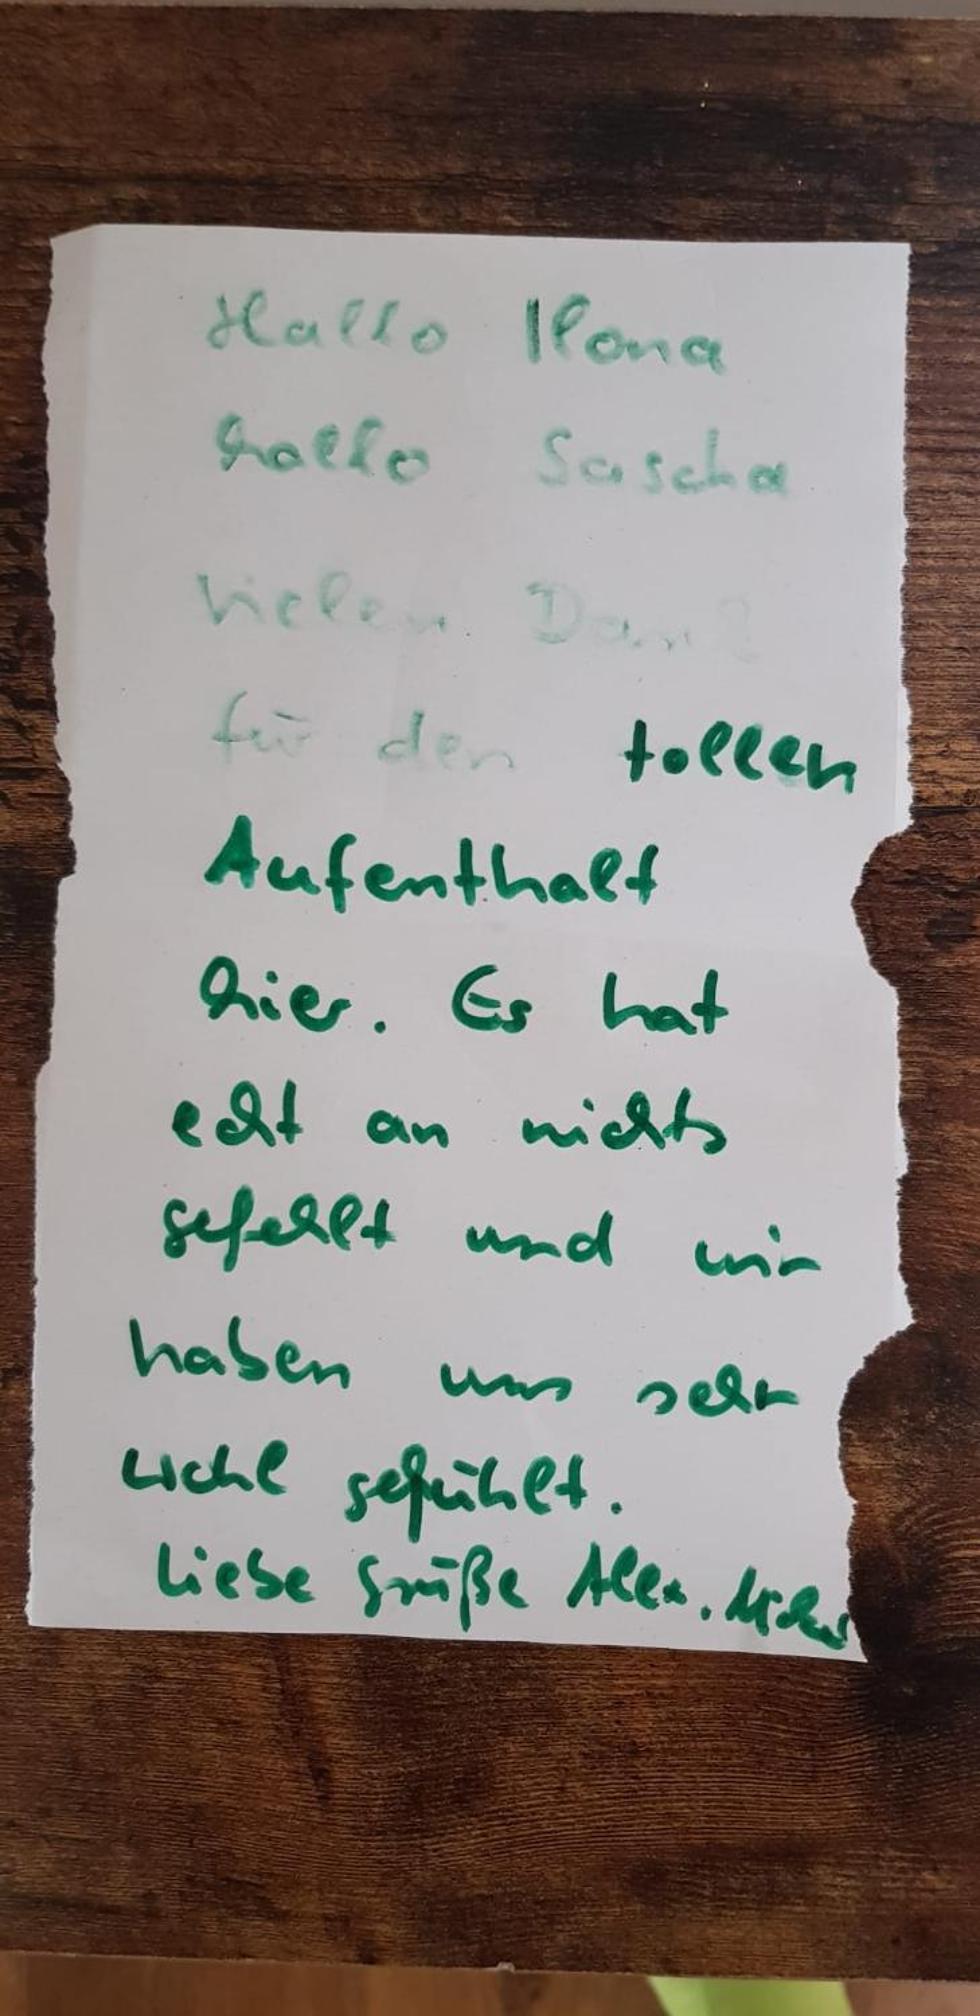 Hallo Ilona
hallo Sascha
vielen Dank
für den tollen
Aufenthalt
hier. Es hat
echt an nichts
gefehlt und wir
haben uns sehr
wohl gefühlt.
Liebe Grüße